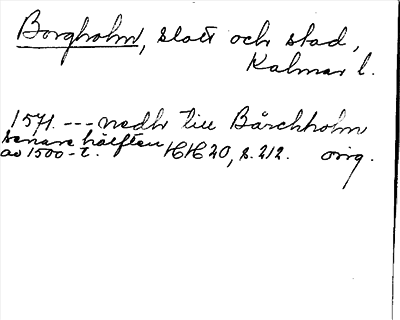 Borgholm, slott och stad,
Kalmar l.
1571. --- nedh till Bårchholm
senare hälften
av 1500-t. HH 20, s. 212. orig.